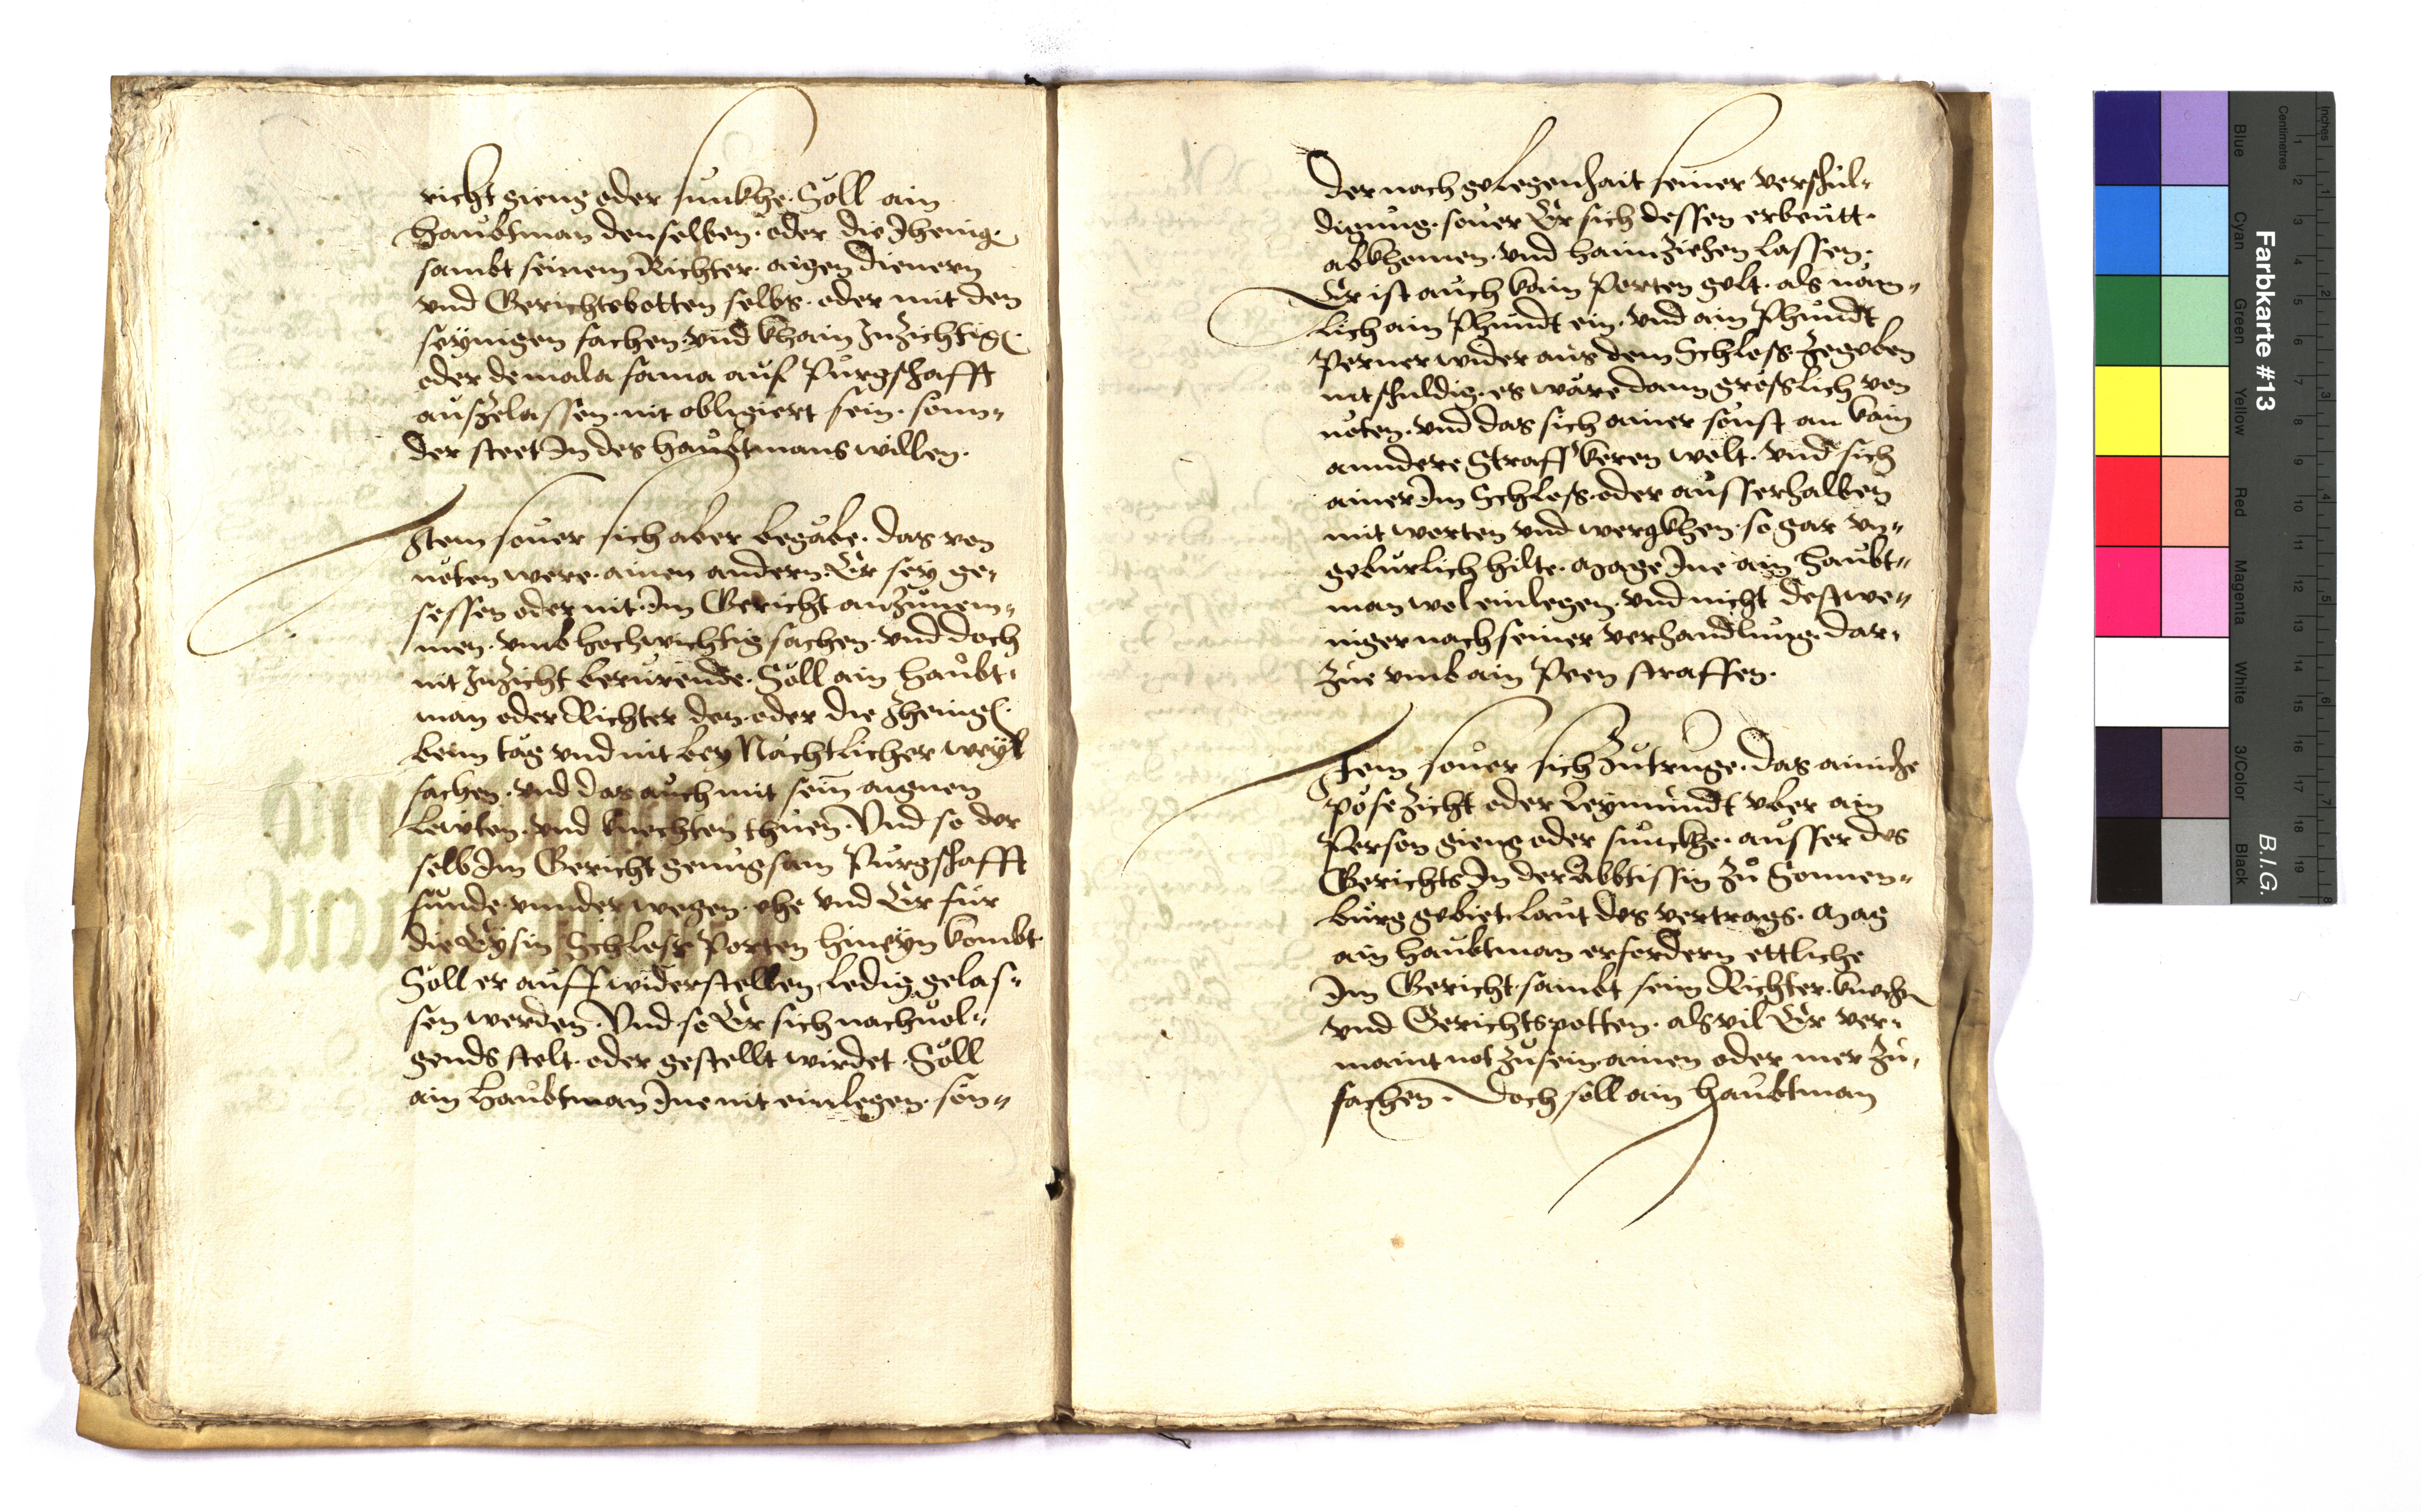 richt gieng oder sunkhe. Soll ain
haubtman denselben. oder die Jhenig.
sambt seinem Richter. aigen dienern
vnd Gerichtsbotten selbs. oder mit den
seynigen fachen. vnd khain Inzichtig.
oder de mala fama auf Purgschafft
auszelassen. nit obligiert sein. sonn„
der steet In des haubtmans willen.
Item souer sich aber begäbe. das von
nöten were. ainen andern. Er sey ge„
sessen oder nit. Im Gericht anzünem„
men. vmb hochwichtig sachen. vnd doch
nit Inzicht berürende. Soll ain haubt„
man oder Richter den. oder die Jhenig.
beim tag vnd nit bey Nächtlicher weyl
fachen. vnd das auch mit sein aignen
Lewten. vnd knechten thuen. Vnd so der
selb Im Gericht genugsam Purgschafft
funde. vnnder wegen. ehe vnd Er für
die Eysin Schloss Porten hineyn kombt.
Soll er auff widerstellen, ledig gelas„
sen werden. Vnd so Er sich nachuol„
gends stelt. oder gestellt wirdet. Soll
ain haubtman Ine nit einlegen. son„
der nach gelegenhait seiner verschul„
digung. souer Er sich dessen erbeutt.
abkhomen. vnd haimziehen lassen.
Er ist auch kain Porten gelt. als näm„
lich ain Phundt ein. vnd ain Phundt
Perner wider aus dem Schloss. zegeben
nit schuldig. es wäre dann grösslich von
nöten. vnd das sich ainer sonst an kain
anndere Straff keren wolt. vnd sich
ainer Im Schloss. oder ausserhalben
mit worten vnd wergkhen. so gar vn„
gebürlich hilte. mag Ine ain Haubt„
man wol einlegen. vnd nicht destwe„
niger nach seiner verhandlung. dar„
zue vmb ain Peen straffen.
Item souer sich Zutruge. das ainiche
pöse Zicht oder Leymundt vber ain
Person gieng oder sunckhe. ausser des
Gerichts In der Abbtissin zu Sonnen„
burg gebiet. laut des vertrags. Mag
ain haubtman erfordern ettliche
Im Gericht. sambt seim Richter. knecht
vnd Gerichtspotten. als vil Er ver„
maint not zu sein. ainen oder mer zu„
fachen. Doch soll ain haubtman
Farbkarte #13
B.I.G.
Blue
Cyan
Green
Yellow
Red
Magenta
White
3/Color
Black
Centimetres
Inches